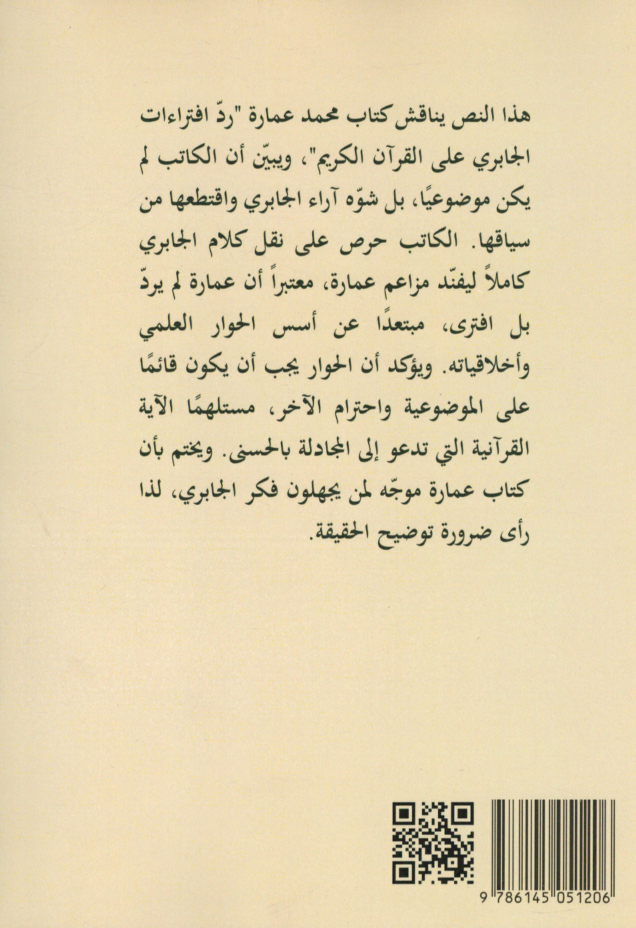 هذا النص يناقش كتاب محمد عمارة "ردّ افتراءات
الجابري على القرآن الكريم"، ويبيّن أن الكاتب لم
يكن موضوعيًا، بل شوّه آراء الجابري واقتطعها من
سياقها. الكاتب حرص على نقل كلام الجابري
كاملاً ليفنّد مزاعم عمارة، معتبراً أن عمارة لم يردّ
بل افترى، مبتعدًا عن أسس الحوار العلمي
وأخلاقياته. ويؤكد أن الحوار يجب أن يكون قائمًا
على الموضوعية واحترام الآخر، مستلهمًا الآية
القرآنية التي تدعو إلى المجادلة بالحسنى. ويختم بأن
كتاب عمارة موجّه لمن يجهلون فكر الجابري، لذا
رأى ضرورة توضيح الحقيقة.
9 786145 051206